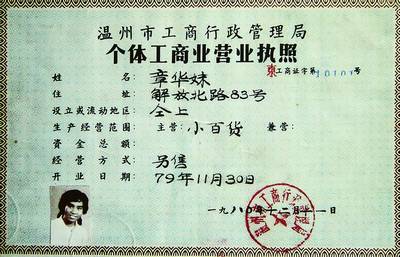 温州市工商行政管理局
个体工商业营业执照
东工商证字第10101号
姓名: 章华妹
住址: 解放北路83号
设立或流动地区: 仝上
生产经营范围: 主营: 小百货 兼营:
资金总额:
经营方式: 另售
开业日期: 79年11月30日
一九八〇年十二月十一日
温州市工商行政管理局